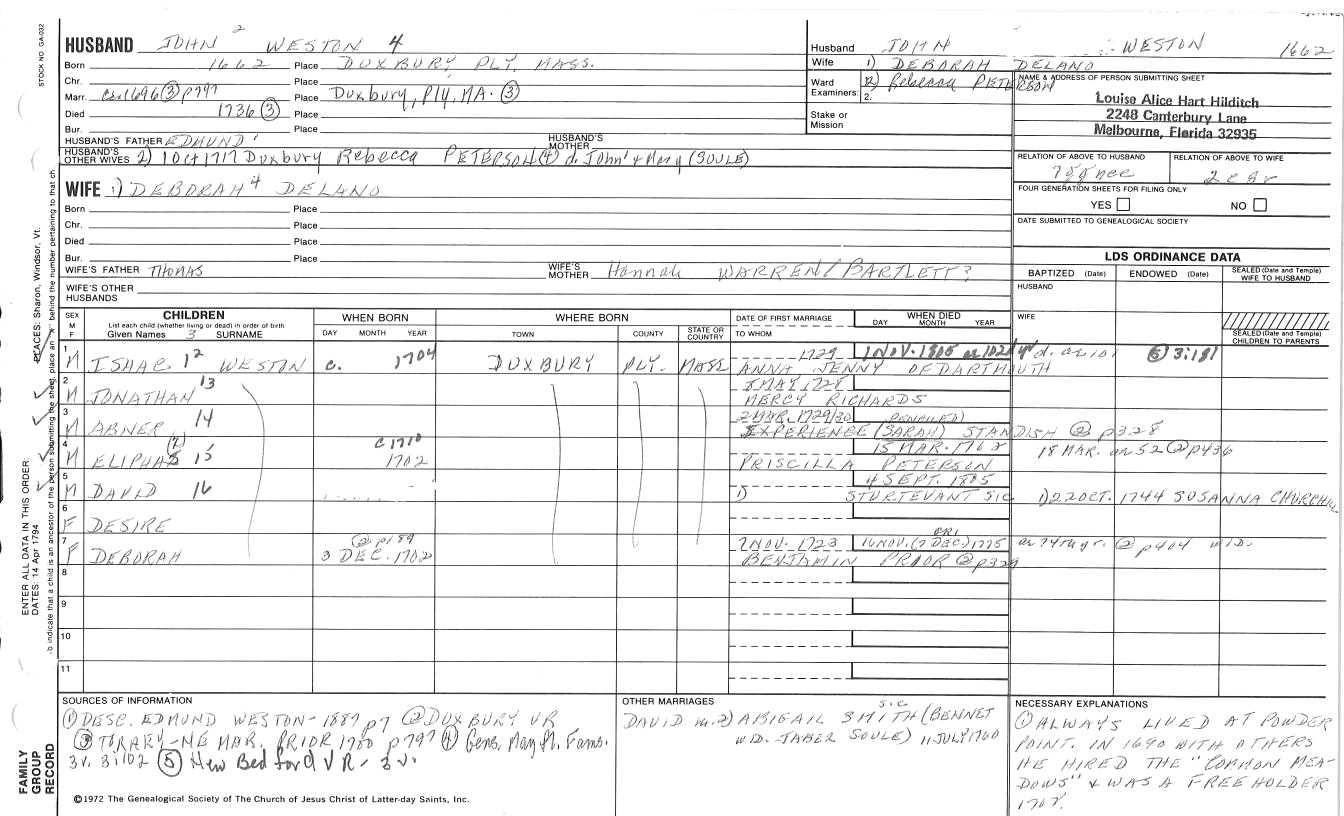 HUSBAND JOHN 2 WESTON 4
Born 1662 Place DUXBURY, PLY, MASS.
Chr. Place
Marr. ca 1696 (3) p797 Place Duxbury, Ply, MA. (3)
Died 1736 (3) Place
Bur. Place
HUSBAND'S FATHER EDMUND 1 HUSBAND'S MOTHER
HUSBAND'S OTHER WIVES 2) 1 Oct 1717 Duxbury Rebecca PETERSON (4) d. John 1 & Mary (SOULE)
Husband JOHN WESTON 1662
Wife 1) DEBORAH DELANO
Ward Examiners: 1. 2) Rebecca PETERSON
2.
Stake or Mission
NAME & ADDRESS OF PERSON SUBMITTING SHEET
Louise Alice Hart Hilditch
2248 Canterbury Lane
Melbourne, Florida 32935
RELATION OF ABOVE TO HUSBAND RELATION OF ABOVE TO WIFE
FOUR GENERATION SHEETS FOR FILING ONLY
YES NO
DATE SUBMITTED TO GENEALOGICAL SOCIETY
WIFE 1) DEBORAH 4 DELANO
Born Place
Chr. Place
Died Place
Bur. Place
WIFE'S FATHER THOMAS WIFE'S MOTHER Hannah WARREN/BARTLETT?
WIFE'S OTHER HUSBANDS
LDS ORDINANCE DATA
BAPTIZED (Date) ENDOWED (Date) SEALED (Date and Temple) WIFE TO HUSBAND
HUSBAND
WIFE
SEALED (Date and Temple) CHILDREN TO PARENTS
SEX M F
CHILDREN
List each child (whether living or dead) in order of birth
Given Names 3 SURNAME
WHEN BORN
DAY MONTH YEAR
WHERE BORN
TOWN COUNTY STATE OR COUNTRY
DATE OF FIRST MARRIAGE
TO WHOM
WHEN DIED
DAY MONTH YEAR
1 M ISAAC 12 WESTON c. 1704 DUXBURY PLY. MASS 1729 1 NOV. 1805 d. (5) 3:181
ANNA JENNY OF DARTMOUTH
2 M JONATHAN 13 5 MAY 1728
MERCY RICHARDS
3 M ABNER 14 2 MAR. 1729/30
EXPERIENCE (SARAH) STANDISH @ p328
4 M ELIPHAS (2) 15 c 1710 1702 15 MAR. 1762
PRISCILLA PETERSON 18 MAR. ae 52 @ p436
5 M DAVID 16 4 SEPT. 1805
1) STURTEVANT SIC 1) 22 OCT. 1744 SUSANNA CHURCHILL
6 F DESIRE
7 F DEBORAH @ p189 3 DEC. 1702 7 NOV. 1723 16 NOV. (7 DEC.) 1775 @ p404 WID.
BENJAMIN PRIOR @ p329
8
9
10
11
SOURCES OF INFORMATION
(1) DESC. EDMUND WESTON - 1887 p7 (2) DUXBURY VR
(3) TORREY - NE MAR. PRIOR 1700 p797 (4) Gens. May. Fl. Fams.
3v. 3:102 (5) New Bedford VR - 3v.
©1972 The Genealogical Society of The Church of Jesus Christ of Latter-day Saints, Inc.
OTHER MARRIAGES
DAVID m. 2) ABIGAIL SMITH SIC (BENNET
WID. JABEZ SOULE) 11 JULY 1760
NECESSARY EXPLANATIONS
(1) ALWAYS LIVED AT POWDER
POINT. IN 1690 WITH OTHERS
HE HIRED THE "COMMON MEA-
DOWS" & WAS A FREEHOLDER
1707.
STOCK NO GA-032
PLACES: Sharon, Windsor, Vt.
ENTER ALL DATA IN THIS ORDER:
DATES: 14 Apr 1794
FAMILY GROUP RECORD